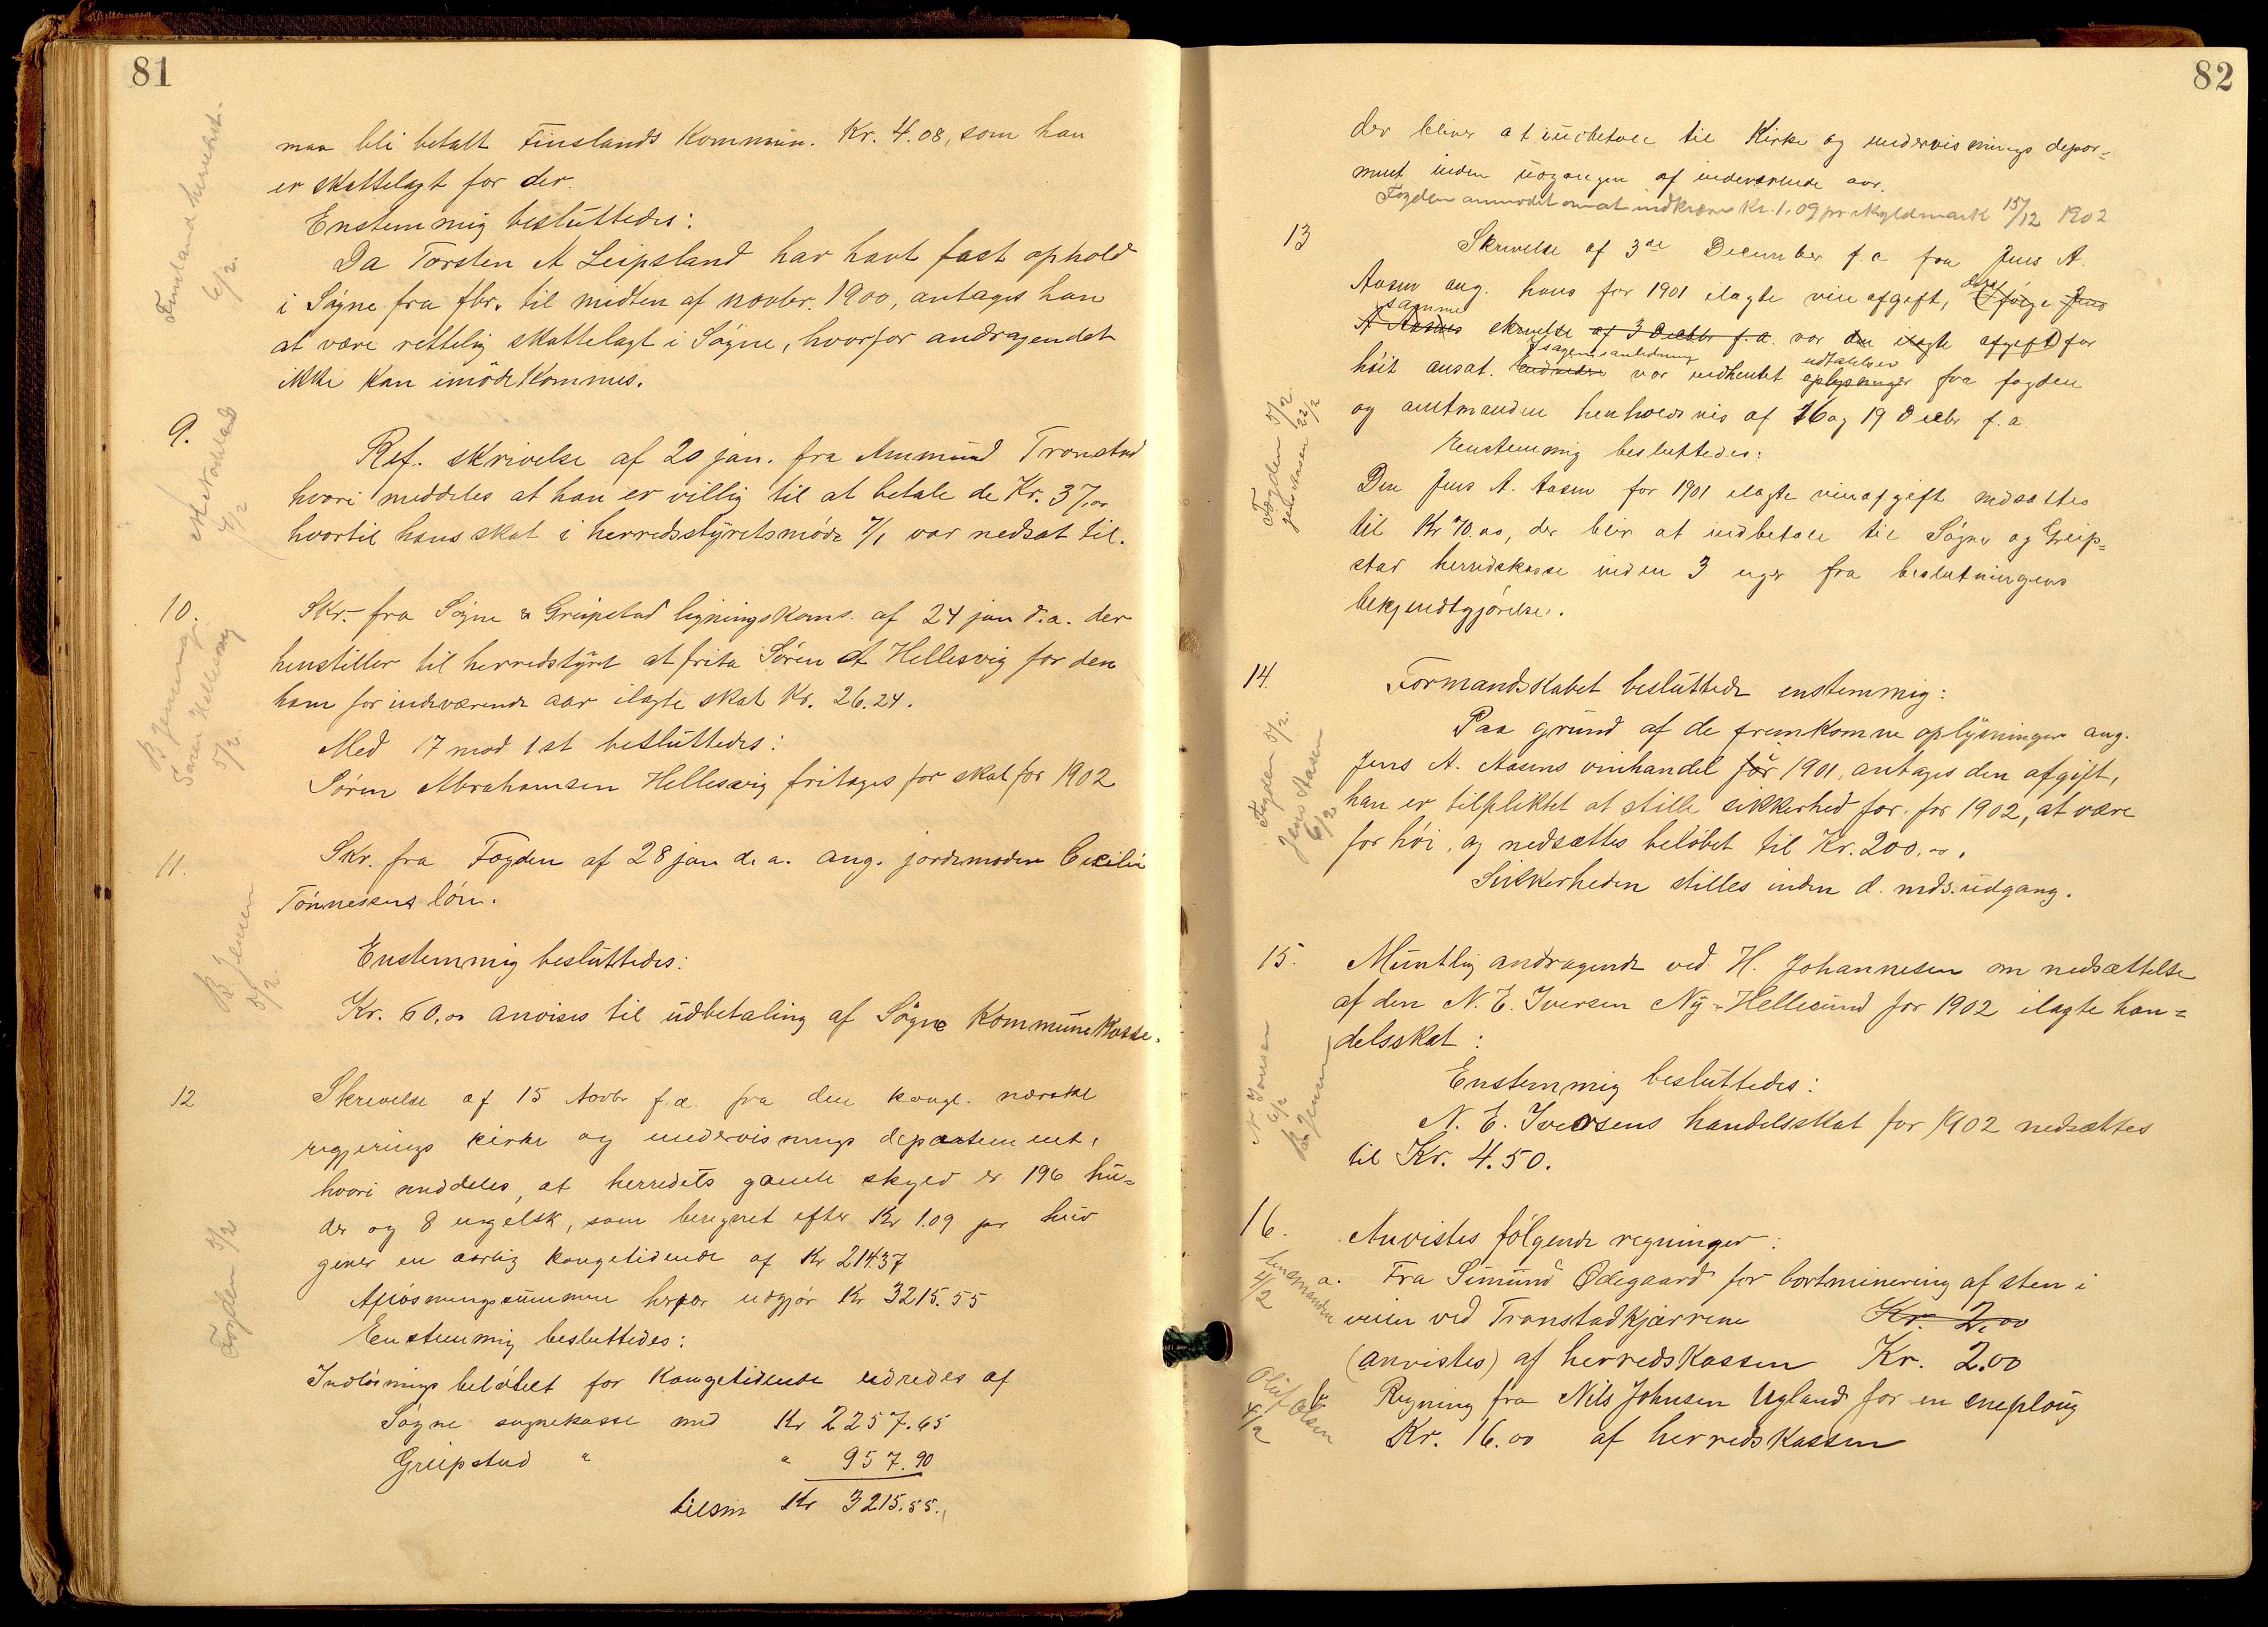 81
maa bli betalt Finslands Kommun. Kr. 4.08, som han
er skattelagt for der.
Enstemmig besluttedes:
Da Torsten A Leipsland har havt fast ophold
i Søgne fra fbr. til midten af novbr. 1900, antages han
at være rettelig skattelagt i Søgne, hvorfor andragendet
ikke kan imødekommes.
Finsland herredst.
6/2.
9.
Ref. skrivelse af 20 jan. fra Ammund Tronstad
hvori meddeles at han er villig til at betale de Kr. 37,00
hvortil hans skat i herredsstyretsmøde 7/1 var nedsat til.
4/2
10.
Skr. fra Søgne & Greipstad ligningskoms. af 24 jan d.a. der
henstiller til herredstyret at frita Søren A Hellesvig for den
ham for indeværende aar ilagte skat Kr. 26.24.
Med 17 mod 1 st besluttedes:
Søren Abrahamsen Hellesvig fritages for skat for 1902
B Jensen og
Søren Hellesvig
5/2.
11.
Skr. fra Fogden af 28 jan d.a. ang. jordemoder Cecilie
Tønnesens løn.
Enstemmig besluttedes:
Kr. 60,00 anvises til udbetaling af Søgne Kommunekasse.
B Jensen
5/2
12
Skrivelse af 15 Novbr f.a. fra den kongl. norske
regjerings kirke og undervisnings departement,
hvori meddeles, at herredets gamle skyld er 196 hu=
der og 8 engelsk, som beregnet efter Kr 1.09 pr hud
giver en aarlig kongetiende af Kr 214.37
Afløsningssummen herfor udgjør Kr 3215.55
Enstemmig besluttedes:
Indløsnings beløbet for Kongetiende udredes af
Søgne sognekasse med Kr 2257.65
Greipstad " " 957.90
tilsm Kr 3215.55.
Fogden 5/2
82
der bliver at indbetale til Kirke og undervisnings depar=
ment inden udgangen af indeværende aar.
Fogden anmodet om at indkræve Kr. 1.09 pr skyldmark 15/12 1902
13
Skrivelse af 3de December f.a fra Jens A.
Aasen ang. hans for 1901 ilagte vin afgift, ifølge Jens
samme
A Aasens skrivelse af 3 Decbr f.a. var den ilagte afgift for
i sagens anledning udtalelser
høit ansat. var indhentet oplysninger fra fogden
og amtmanden henholdsvis af 16 og 19 Decbr f.a.
Enstemmig besluttedes:
Den Jens A. Aasen for 1901 ilagte vinafgift nedsættes
til Kr 70.00, der blir at indbetale til Søgne og Greip=
stad herredskasse inden 3 uger fra beslutningens
bekjendtgjørelse.
Fogden 5/2
Jens Aasen 22/2
14.
Formandskabet besluttede enstemmig:
Paa grund af de fremkomne oplysninger ang.
Jens A. Aasens vinhandel for i 1901, antages den afgift,
han er tilpliktet at stille sikkerhed for, for 1902, at være
for høi, og nedsættes beløbet til Kr. 200.00.
Sikkerheden stilles inden d. mds. udgang.
Fogden 5/2.
Jens Aasen
6/2
15.
Muntlig andragende ved H. Johannesen om nedsættelse
af den N. E. Iversen Ny-Hellesund for 1902 ilagte han=
delsskat:
Enstemmig besluttedes:
N. E. Iversens handelsskat for 1902 nedsættes
til Kr. 4.50.
6/2
B Jensen
16.
Anvistes følgende regninger:
a. Fra Simund Ødegaard for bortminering af sten i
veien ved Tronstadkjærrene Kr. 2,00
(anvistes) af herredskassen Kr. 2.00
lensmanden
4/2
b. Regning fra Nils Johnsen Ugland for en sneploug
Kr. 16.00 af herredskassen
Oluf Olsen
4/2